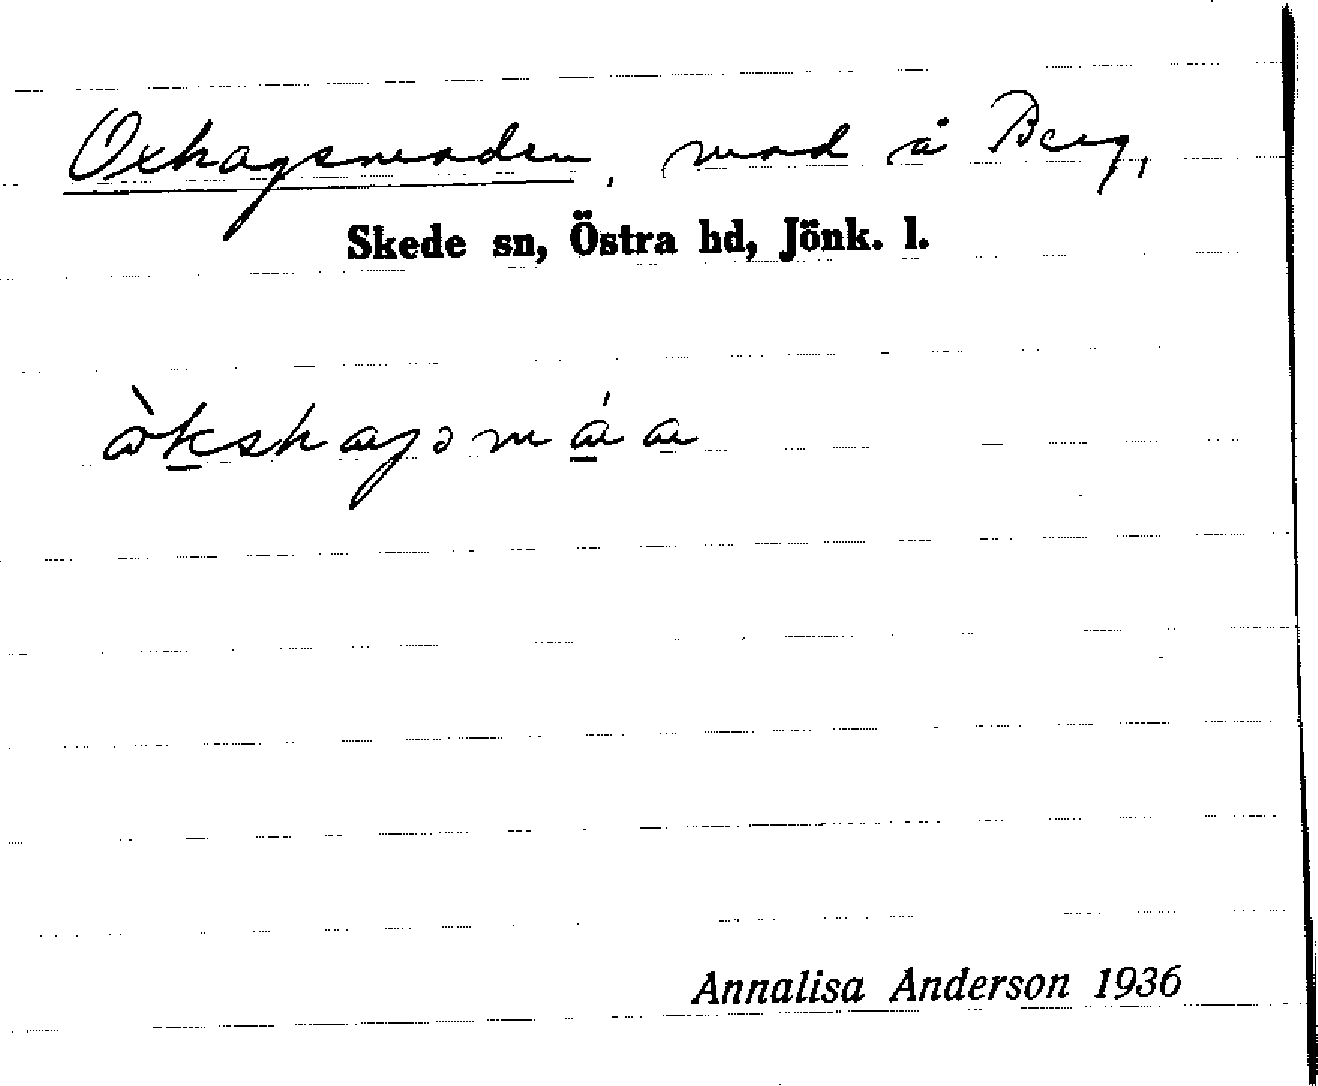 Oxhagsmaden, mad å Berg,
Skede sn, Östra hd, Jönk. l.
Annalisa Anderson 1936